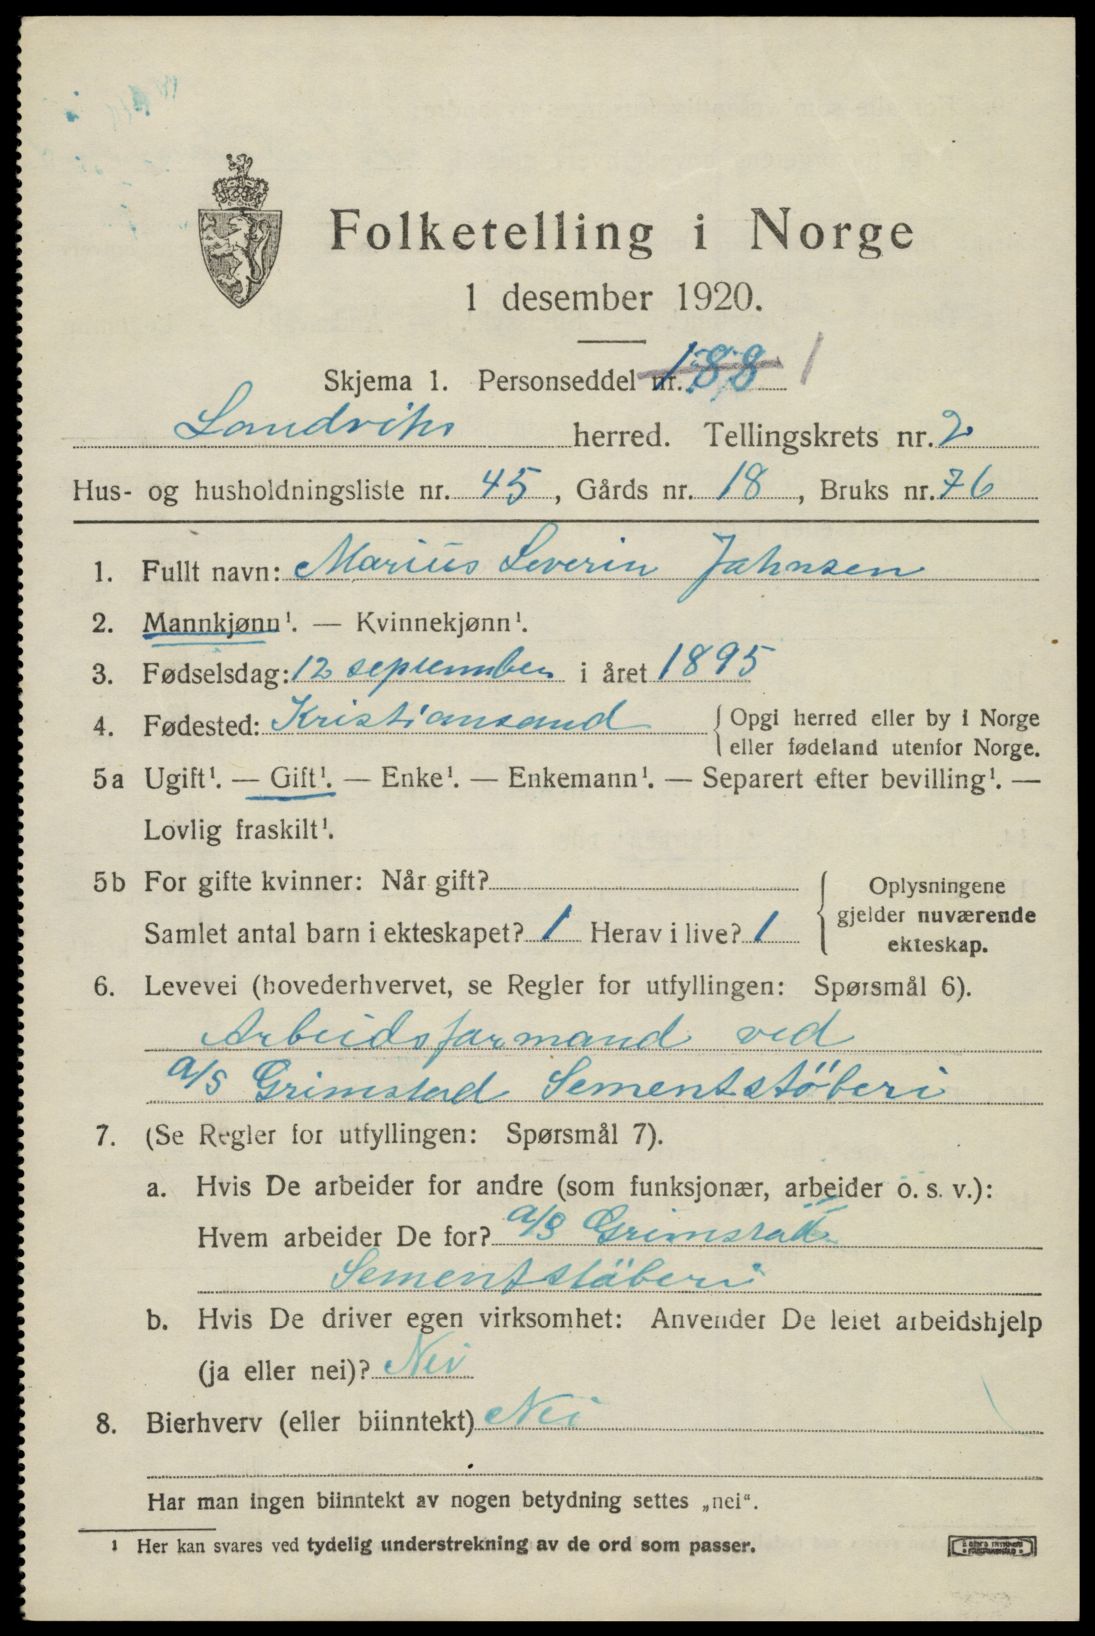 Folketelling i Norge
1 desember 1920.
Skjema 1. Personseddel nr. 188 1
Landviks herred. Tellingskrets nr. 2
Hus- og husholdningsliste nr. 45, Gårds nr. 18, Bruks nr. 76
1. Fullt navn: Marius Severin Jahnsen
2. Mannkjønn¹. — Kvinnekjønn¹.
3. Fødselsdag: 12 september i året 1895
4. Fødested: Kristiansand { Opgi herred eller by i Norge
eller fødeland utenfor Norge.
5a Ugift¹. — Gift¹. — Enke¹. — Enkemann¹. — Separert efter bevilling¹. —
Lovlig fraskilt¹.
5b For gifte kvinner: Når gift?
Samlet antal barn i ekteskapet? 1 Herav i live? 1
Oplysningene
gjelder nuværende
ekteskap.
6. Levevei (hovederhvervet, se Regler for utfyllingen: Spørsmål 6).
Arbeidsformand ved
a/s Grimstad Sementstöberi
7. (Se Regler for utfyllingen: Spørsmål 7).
a. Hvis De arbeider for andre (som funksjonær, arbeider o. s. v.):
Hvem arbeider De for? a/s Grimstad
Sementstöberi
b. Hvis De driver egen virksomhet: Anvender De leiet arbeidshjelp
(ja eller nei)? Nei
8. Bierhverv (eller biinntekt) Nei
Har man ingen biinntekt av nogen betydning settes „nei“.
¹ Her kan svares ved tydelig understrekning av de ord som passer.